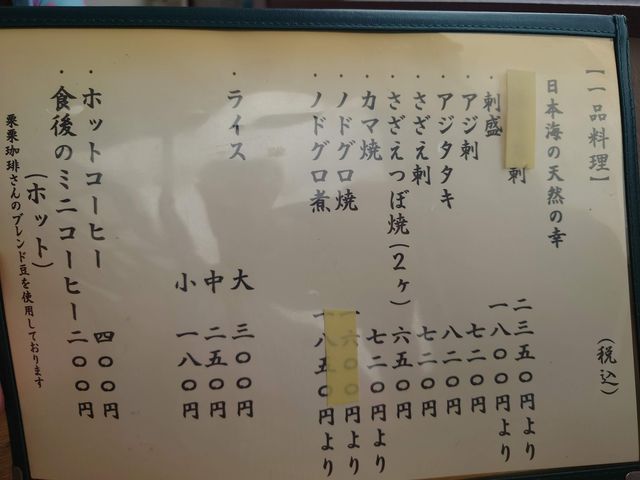 【一品料理】 (税込)
日本海の天然の幸
刺 二三五〇円より
・刺盛 一八〇〇円より
・アジ刺 七二〇円
・アジタタキ 八二〇円
・さざえ刺 七二〇円
・さざえつぼ焼(2ヶ) 六五〇円
・カマ焼 七二〇円より
・ノドグロ焼 一六〇〇円より
・ノドグロ煮 一八五〇円より
・ライス 大 三〇〇円
中 二五〇円
小 一八〇円
・ホットコーヒー 四〇〇円
・食後のミニコーヒー 二〇〇円
(ホット)
栗栗珈琲さんのブレンド豆を使用しております